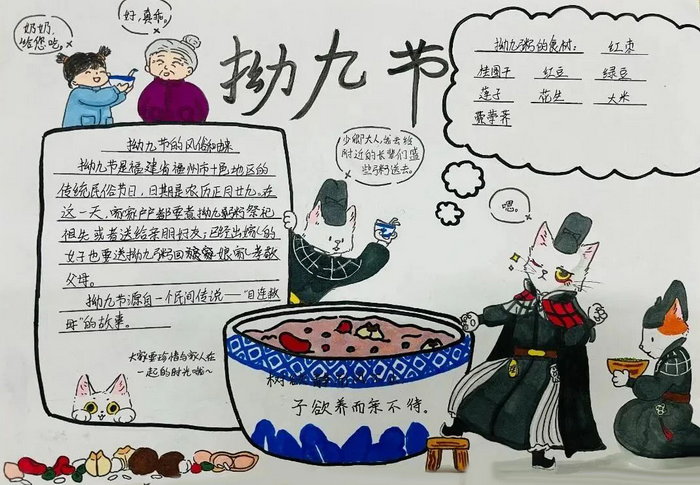 奶奶,
给您吃。
好,真乖。
拗九节
拗九粥的食材: 红枣
桂圆干 红豆 绿豆
莲子 花生 大米
栗荸荠
拗九节的风俗由来
拗九节是福建省福州市十邑地区的
传统民俗节日,日期是农历正月廿九。在
这一天,家家户户都要煮拗九粥祭祀
祖先或者送给亲朋好友;已经出嫁的
女子也要送拗九粥回娘家孝敬
父母。
拗九节源自一个民间传说——“目连救
母”的故事。
大家要珍惜与家人在
一起的时光哦~
少卿大人,我去给
附近的长辈们盛
些粥送去。
嗯。
子欲养而亲不待。